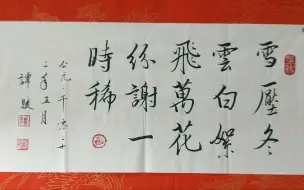 雪壓冬
雲白絮
飛萬花
紛謝一
時稀
公元二千零二十
二年五月
譚